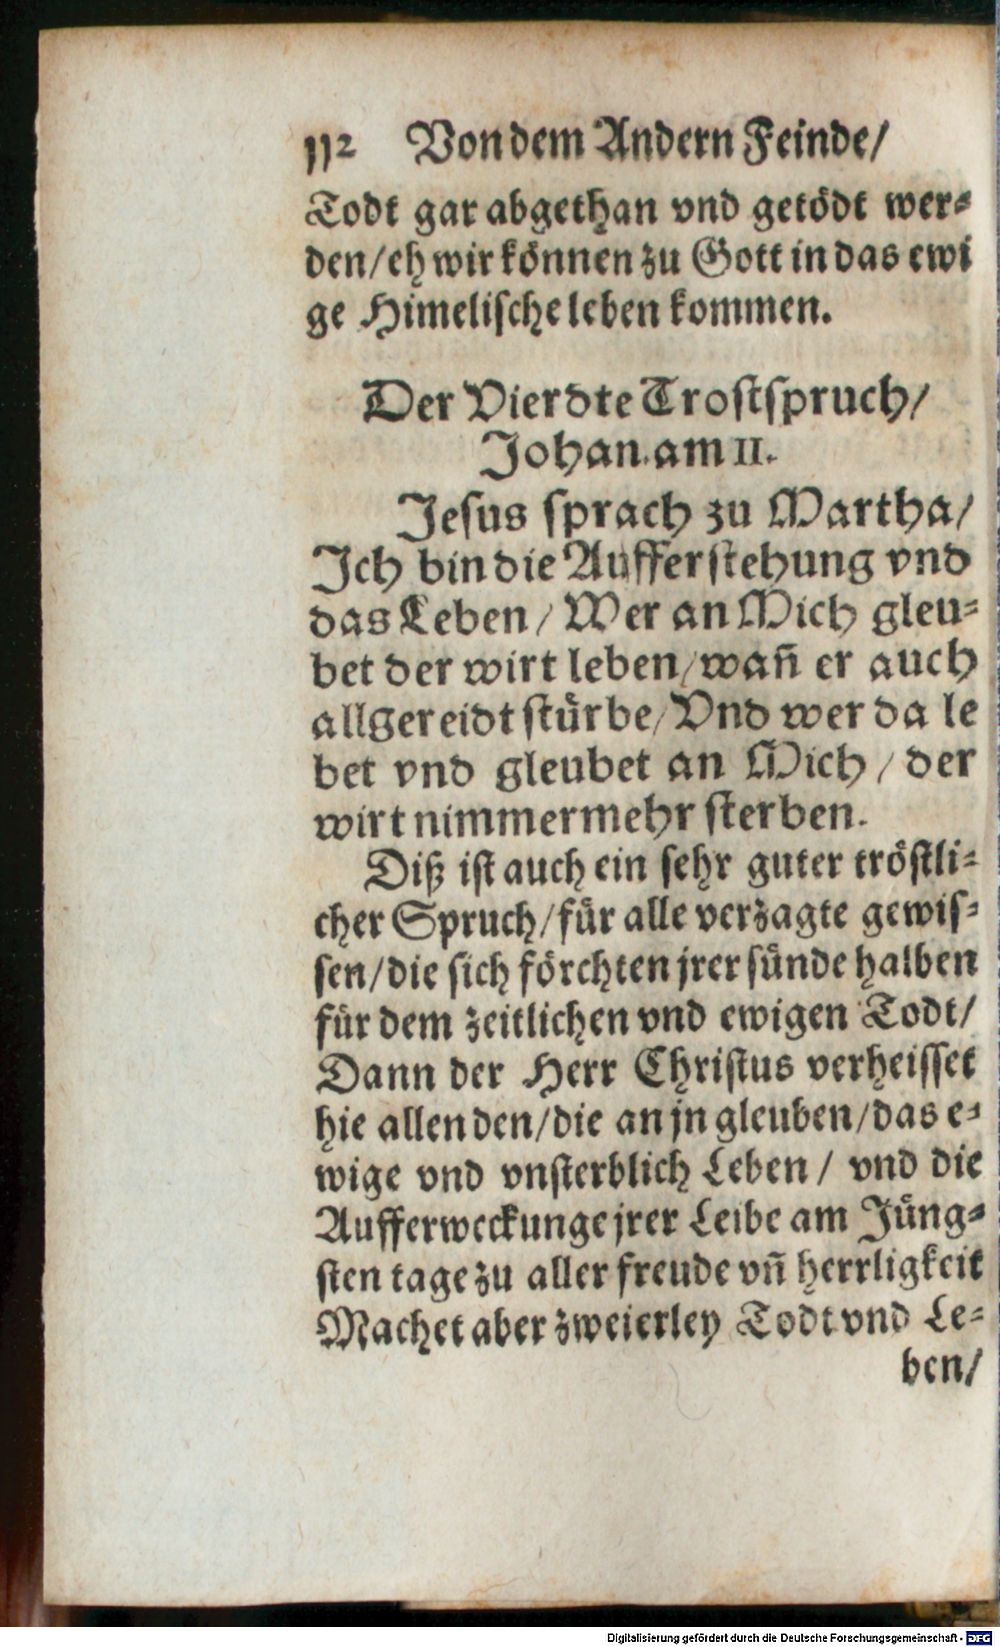 112 Von dem Andern Feinde/
Todt gar abgethan vnd getödt wer⸗
den/eh wir können zu Gott in das ewi
ge Himelische leben kommen.
Der Vierdte Trostspruch/
Johan. am 11.
Jesus sprach zu Martha/
Ich bin die Aufferstehung vnd
das Leben/ Wer an Mich gleu⸗
bet der wirt leben/ wañ er auch
allgereidt stürbe/ Vnd wer da le
bet vnd gleubet an Mich/ der
wirt nimmermehr sterben.
Diß ist auch ein sehr guter tröstli⸗
cher Spruch/für alle verzagte gewis⸗
sen/die sich förchten jrer sünde halben
für dem zeitlichen vnd ewigen Todt/
Dann der Herr Christus verheisset
hie allen den/die an jn gleuben/das e⸗
wige vnd vnsterblich Leben/ vnd die
Aufferweckunge jrer Leibe am Jüng⸗
sten tage zu aller freude vñ herrligkeit
Machet aber zweierley Todt vnd Le⸗
ben/
Digitalisierung gefördert durch die Deutsche Forschungsgemeinschaft - DFG